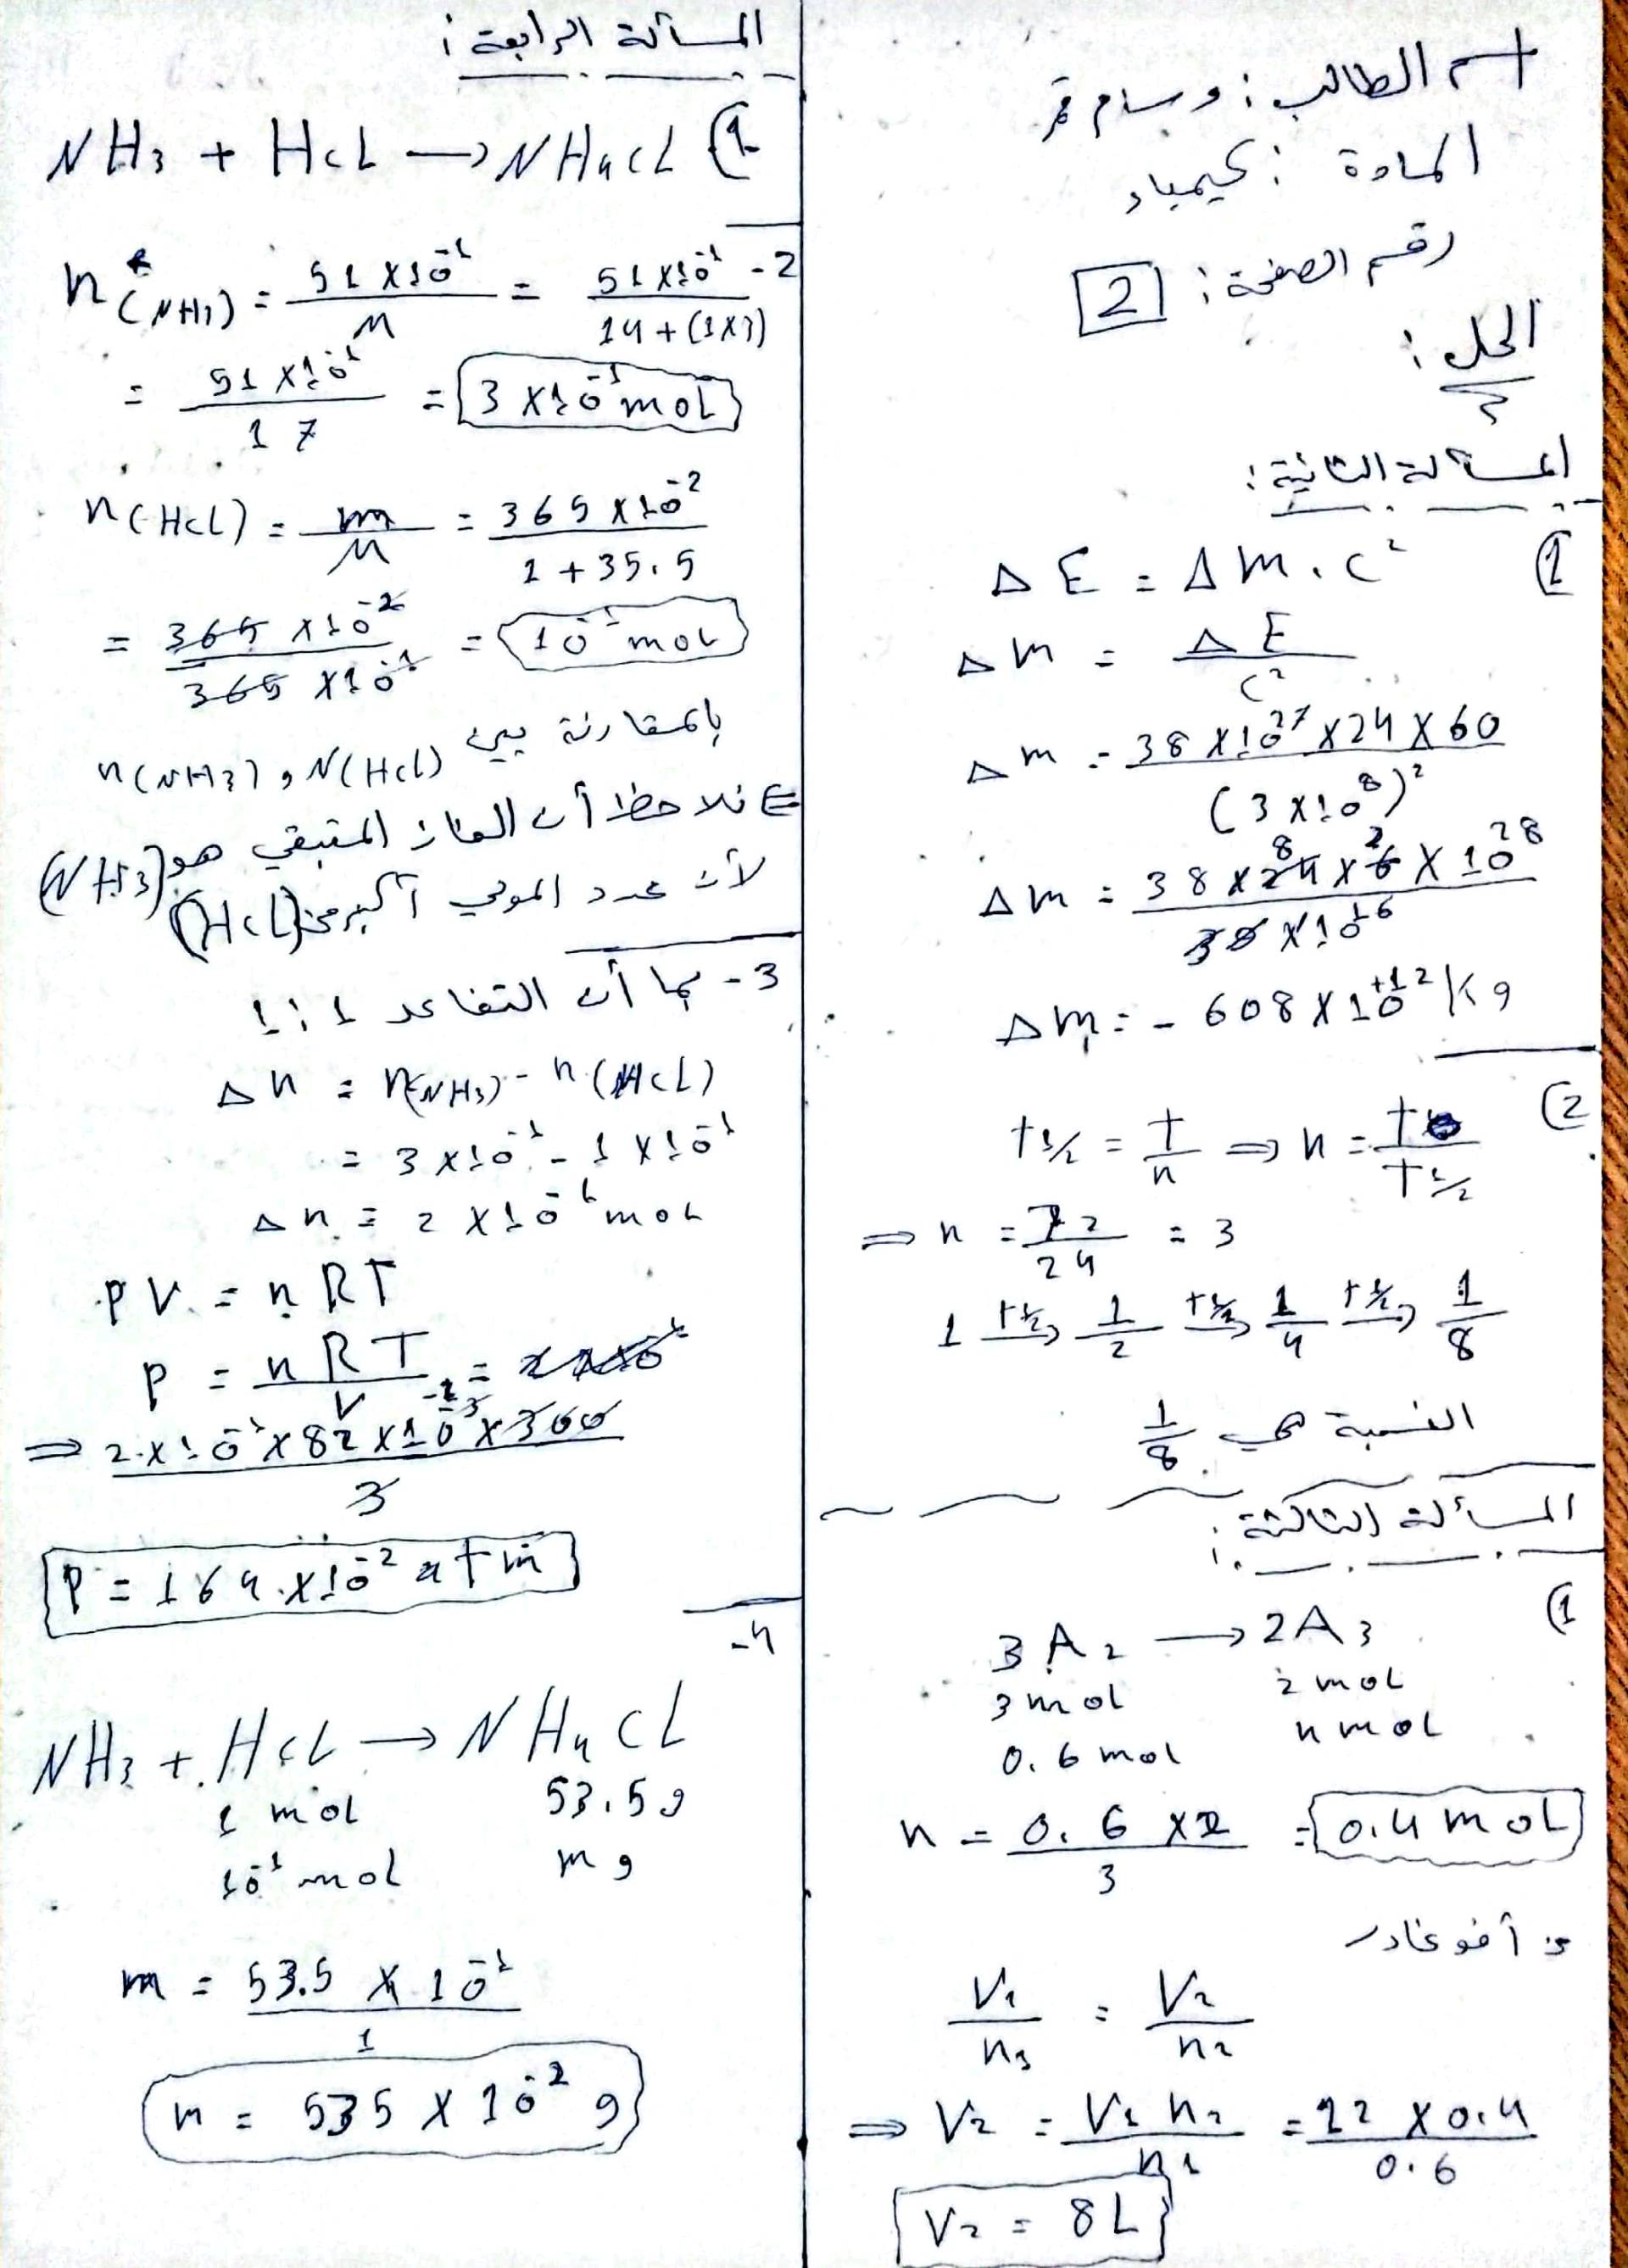 اسم الطالب: وسام قمر
المادة: كيمياء
رقم الصفحة: 2
الحل:
المسألة الثانية:
1) ΔE = Δm . c²
Δm = ΔE / c²
Δm = - 38 × 10²⁷ × 24 × 60 / (3 × 10⁸)²
Δm = 38 × 24 × 6 × 10²⁸ / × 10¹⁶
Δm = - 608 × 10⁺¹² Kg
2) t½ = t / n ⇒ n = t / t½
⇒ n = 72 / 24 = 3
1 —t½→ 1/2 —t½→ 1/4 —t½→ 1/8
النسبة هي 1/8
المسألة الثالثة:
1) 3A₂ → 2A₃
3 mol 2 mol
0.6 mol n mol
n = 0.6 × 2 / 3 = 0.4 mol
أفوغادر
V₁ / n₁ = V₂ / n₂
⇒ V₂ = V₁ n₂ / n₁ = 12 × 0.4 / 0.6
V₂ = 8 L
المسألة الرابعة:
1) NH₃ + HCl → NH₄Cl
2- n(NH₃) = 51 × 10⁻¹ / M = 51 × 10⁻¹ / 14 + (1×3)
= 51 × 10⁻¹ / 17 = 3 × 10⁻¹ mol
n(HCl) = m / M = 365 × 10⁻² / 1 + 35.5
= 365 × 10⁻² / 365 × 10⁻¹ = 10⁻¹ mol
بالمقارنة بين
n(NH₃) , N(HCl)
نلاحظ أن الغاز المتبقي هو (NH₃)
لأن عدد المولي أكبر من (HCl)
3- بما أن التفاعل 1:1
Δn = n(NH₃) - n(HCl)
= 3 × 10⁻¹ - 1 × 10⁻¹
Δn = 2 × 10⁻¹ mol
PV = nRT
P = nRT / V =
⇒ 2 × 10⁻¹ × 82 × 10⁻³ × 300 / 3
P = 164 × 10⁻² atm
4-
NH₃ + HCl → NH₄Cl
1 mol 53.5 g
10⁻¹ mol m g
m = 53.5 × 10⁻¹ / 1
m = 535 × 10⁻² g